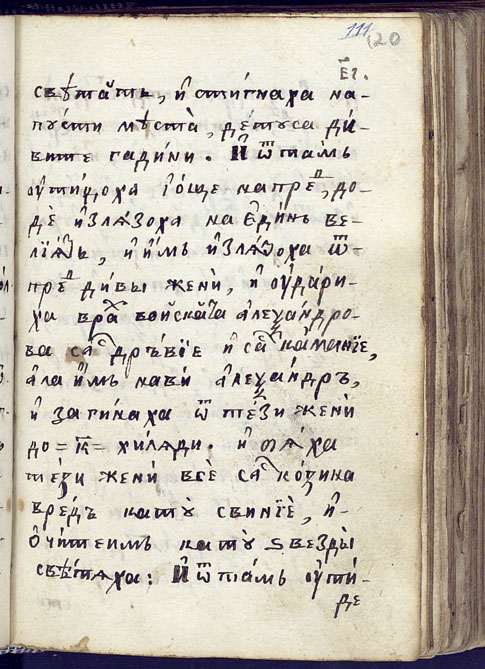 111
120
є҃і.
свѣтатъ, и҆ стигнаха на-
пꙋсти мѣста̀, де́тѹса ди́-
вите гадини. И҆ ѿтамь
оу҆тидоха і҆още напреⷣ, до-
дѐ и҆злѧзоха на є҆динь ве-
лїѧ҆ть, и҆ и҆мь и҆злѧзоха ѿ-
преⷣ дивы женѝ, и҆ оу҆да́ри-
ха враⷯ войската а҆леѯа́ндро-
ва саⷭ дръ́вїе и҆ саⷭ ка́манїе,
а҆ла и҆мь навѝ а҆леѯа́ндръ,
и҆ загинаха ѿ те́зи женѝ
до = к҃ = хилѧди. и҆ бѧ́ха
те́зи женѝ всѐ саⷭ ко́зина
вредъ катѹ̀ свинїѐ, и҆-
о҆чи́теимь катѹ̀ ѕвезды̀
свѣ́тѧха: И҆ ѿтамь оу҆ти́-
де